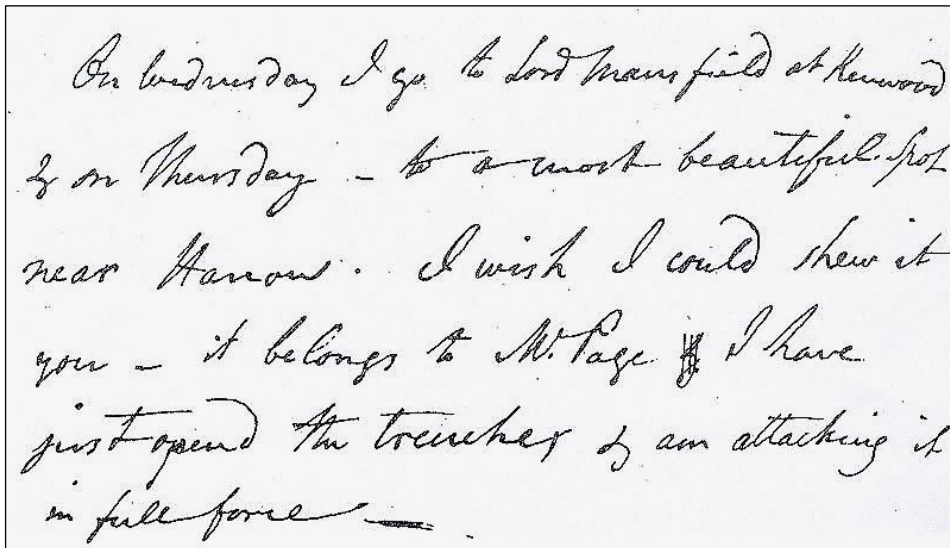 On Wednesday I go to Lord Mansfield at Kenwood
& on Thursday – to a most beautiful Spot
near Harrow. I wish I could shew it
you – it belongs to Mr. Page I have
just opend the trenches & am attacking it
in full force —